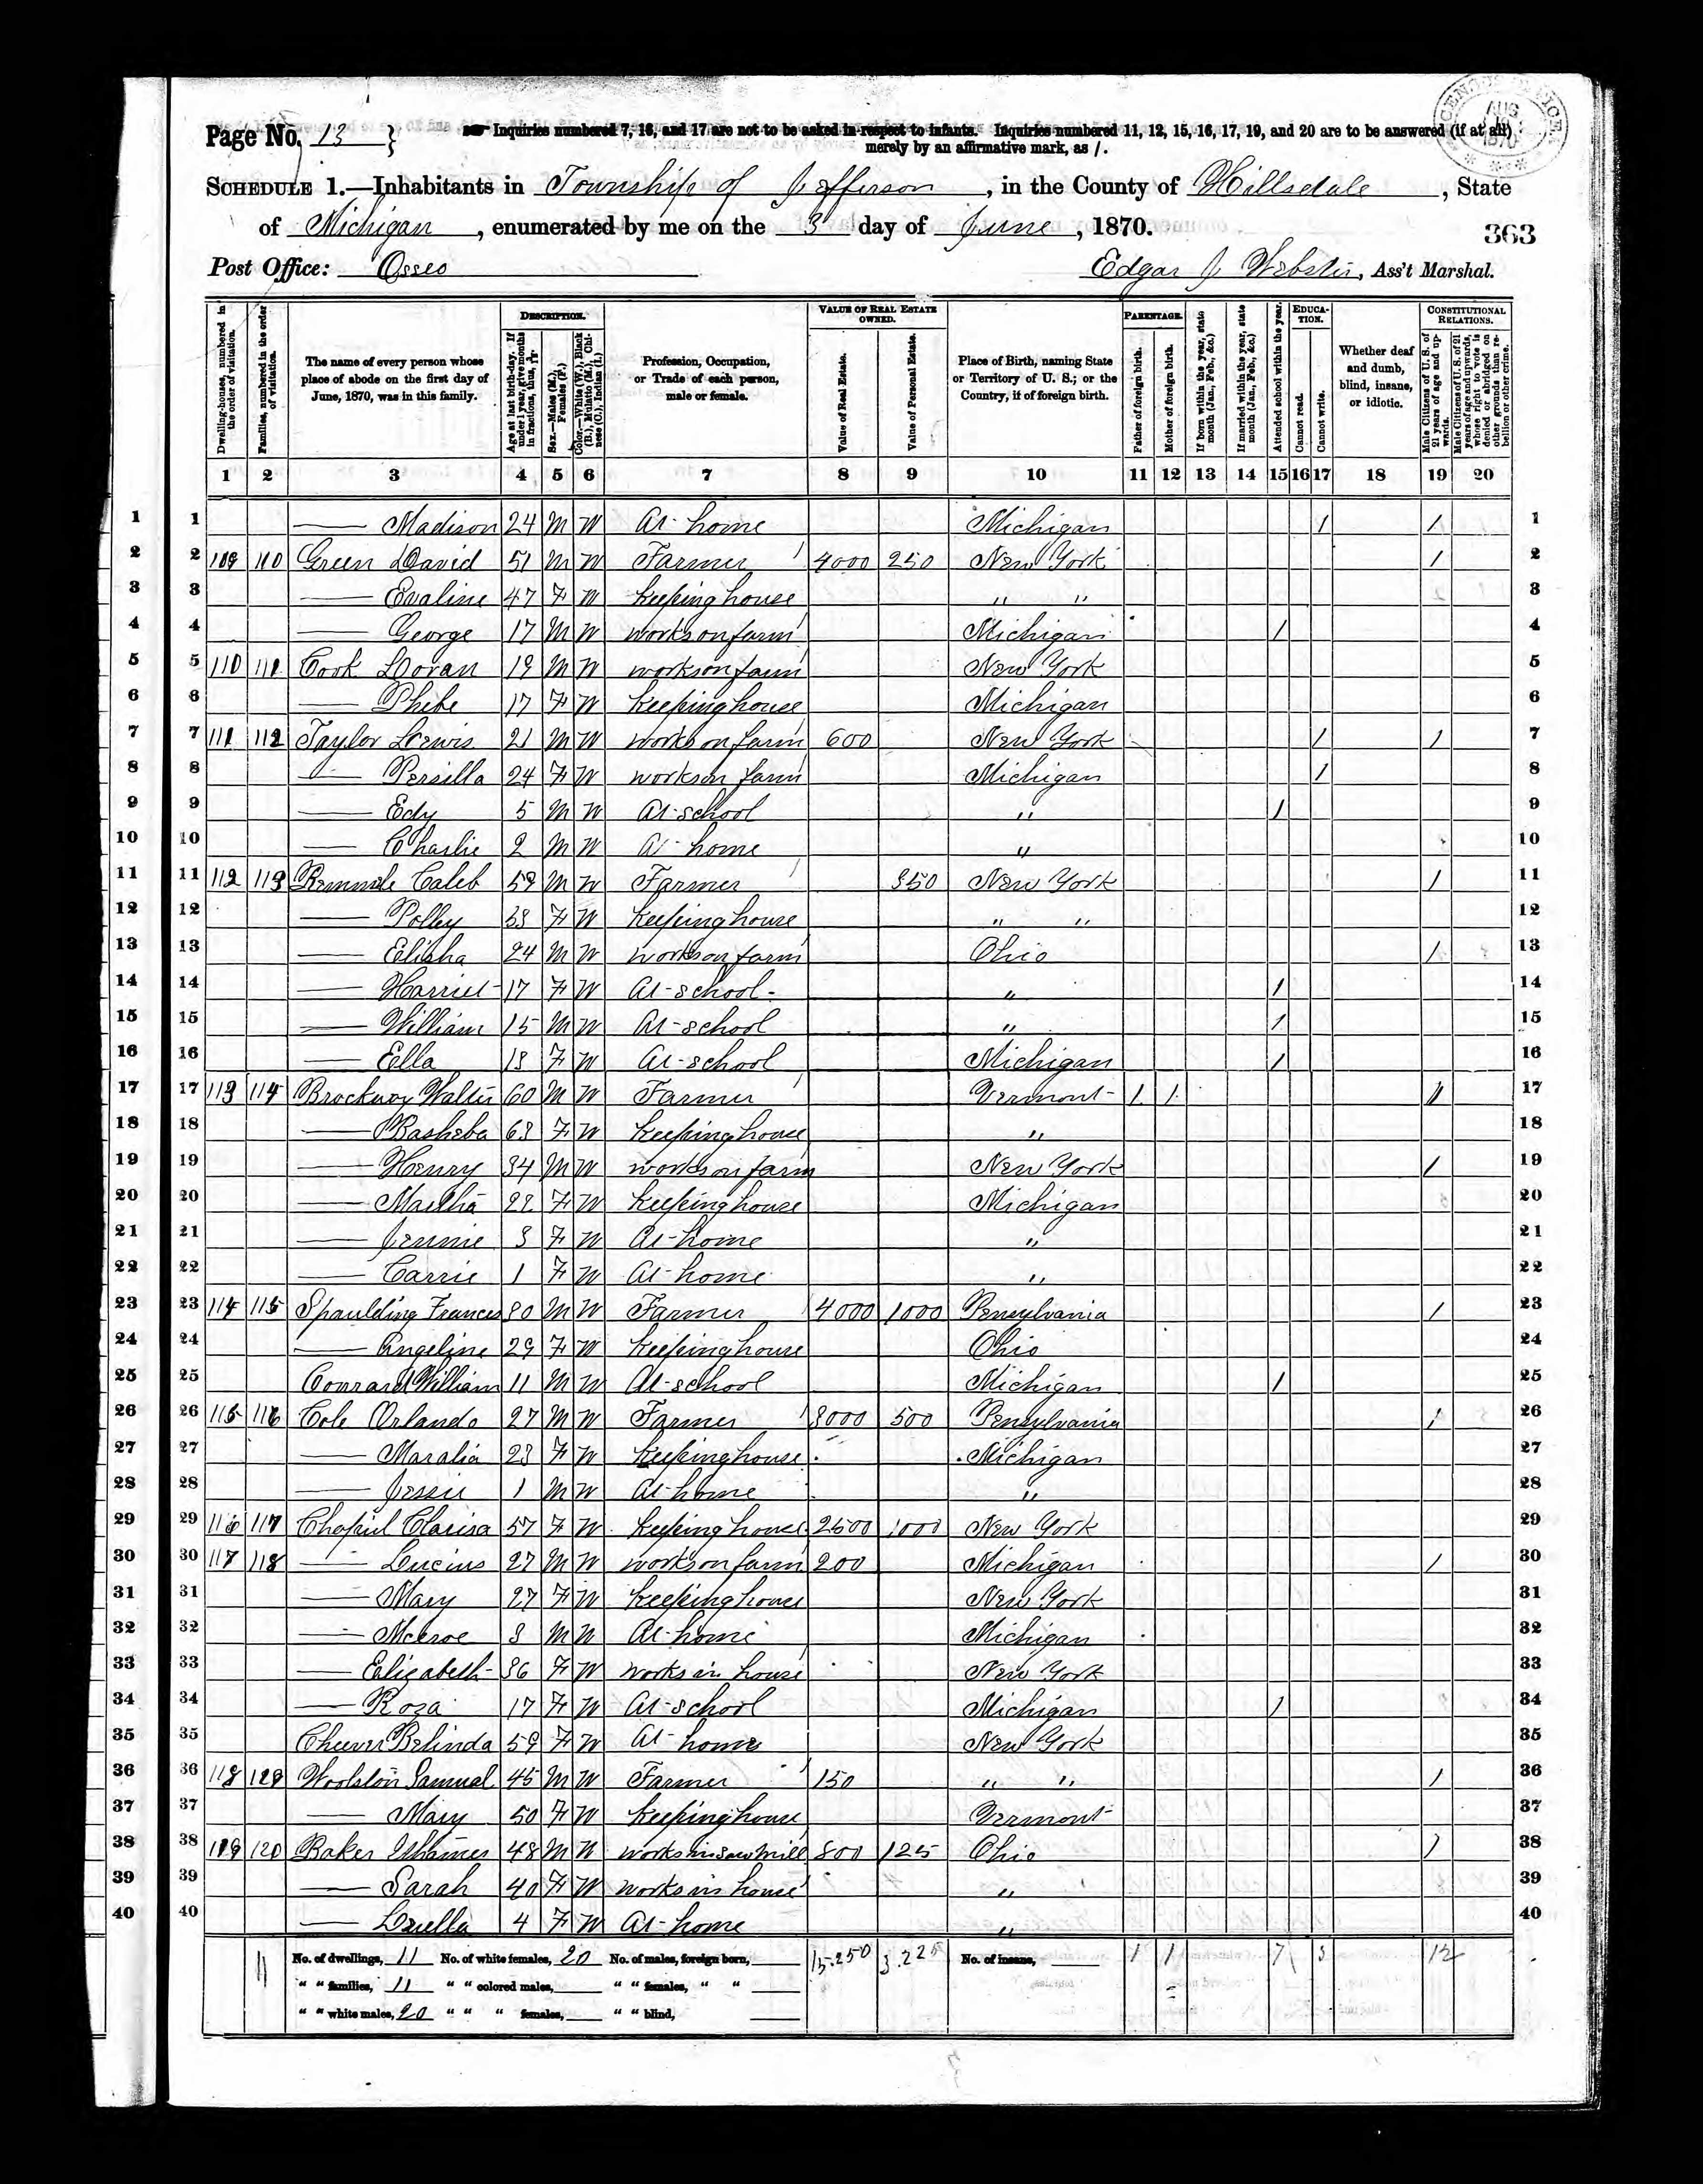 CENSUS OFFICE AUG 1870
Page No. 13 } Inquiries numbered 7, 16, and 17 are not to be asked in respect to infants. Inquiries numbered 11, 12, 15, 16, 17, 19, and 20 are to be answered (if at all)
merely by an affirmative mark, as /.
SCHEDULE 1.—Inhabitants in Township of Jefferson, in the County of Hillsdale, State
of Michigan, enumerated by me on the 3 day of June, 1870. 363
Post Office: Osseo Edgar J Webster, Ass't Marshal.
Dwelling-houses, numbered in the order of visitation.
Families, numbered in the order of visitation.
The name of every person whose place of abode on the first day of June, 1870, was in this family.
DESCRIPTION.
Age at last birth-day. If under 1 year, give months in fractions, thus, 3/12.
Sex.—Males (M.), Females (F.)
Color.—White (W.), Black (B.), Mulatto (M.), Chinese (C.), Indian (I.)
Profession, Occupation, or Trade of each person, male or female.
VALUE OF REAL ESTATE OWNED.
Value of Real Estate.
Value of Personal Estate.
Place of Birth, naming State or Territory of U. S.; or the Country, if of foreign birth.
PARENTAGE.
Father of foreign birth.
Mother of foreign birth.
If born within the year, state month (Jan., Feb., &c.)
If married within the year, state month (Jan., Feb., &c.)
Attended school within the year.
EDUCATION.
Cannot read.
Cannot write.
Whether deaf and dumb, blind, insane, or idiotic.
CONSTITUTIONAL RELATIONS.
Male Citizens of U. S. of 21 years of age and upwards.
Male Citizens of U. S. of 21 years of age and upwards, whose right to vote is denied or abridged on other grounds than rebellion or other crime.
1 2 3 4 5 6 7 8 9 10 11 12 13 14 15 16 17 18 19 20
1 1 —— Madison 24 M W At home Michigan / / 1
2 2 109 110 Green David 51 M W Farmer 4000 250 New York / 2
3 3 —— Evaline 47 F W Keeping house " " 3
4 4 —— George 17 M W works on farm Michigan / 4
5 5 110 111 Cook Loran 19 M W works on farm New York 5
6 6 —— Phebe 17 F W Keeping house Michigan 6
7 7 111 112 Taylor Lewis 21 M W works on farm 600 New York / / 7
8 8 —— Persilla 24 F W works on farm Michigan / 8
9 9 —— Edy 5 M W At school " / 9
10 10 —— Charlie 2 M W At home " 10
11 11 112 113 Caleb 59 M W Farmer 350 New York / 11
12 12 —— Polley F W Keeping house " " 12
13 13 —— Elisha 24 M W works on farm Ohio / 13
14 14 —— Harriet 17 F W At school " / 14
15 15 —— William 15 M W At school " / 15
16 16 —— Ella 13 F W At school Michigan / 16
17 17 113 114 Brockway Walter 60 M W Farmer Vermont / / / 17
18 18 —— Basheba 63 F W Keeping house " 18
19 19 —— Henry 34 M W works on farm New York / 19
20 20 —— Martha F W Keeping house Michigan 20
21 21 —— Jennie 3 F W At home " 21
22 22 —— Carrie 1 F W At home " 22
23 23 114 115 Spaulding Frances 30 M W Farmer 4000 1000 Pensylvania / 23
24 24 —— Angeline 29 F W Keeping house Ohio 24
25 25 Conrad William 11 M W At school Michigan / 25
26 26 115 116 Cole Orlando 27 M W Farmer 3000 500 Pensylvania / 26
27 27 —— Maralia 23 F W Keeping house Michigan 27
28 28 —— Jessie 1 M W At home " 28
29 29 116 117 Clarisa 57 F W Keeping house 2500 1000 New York 29
30 30 117 118 —— Lucius 27 M W works on farm 200 Michigan / 30
31 31 —— Mary 27 F W Keeping house New York 31
32 32 —— 3 M W At home Michigan 32
33 33 —— Elizabeth 36 F W works in house New York 33
34 34 —— Roza 17 F W At school Michigan / 34
35 35 Cheever Belinda 59 F W At home New York 35
36 36 118 Woolston Samuel 45 M W Farmer 150 " " / 36
37 37 —— Mary 50 F W Keeping house Vermont 37
38 38 119 120 Baker 48 M W works in saw mill 800 125 Ohio / 38
39 39 —— Sarah 40 F W works in house " 39
40 40 —— Luella 4 F W At home " 40
11 No. of dwellings, 11 No. of white females, 20 No. of males, foreign born, 15.250 3.225 No. of insane, 1 1 7 3 12
" " families, 11 " " colored males, " " females, " "
" " white males, 20 " " " females, " " blind,